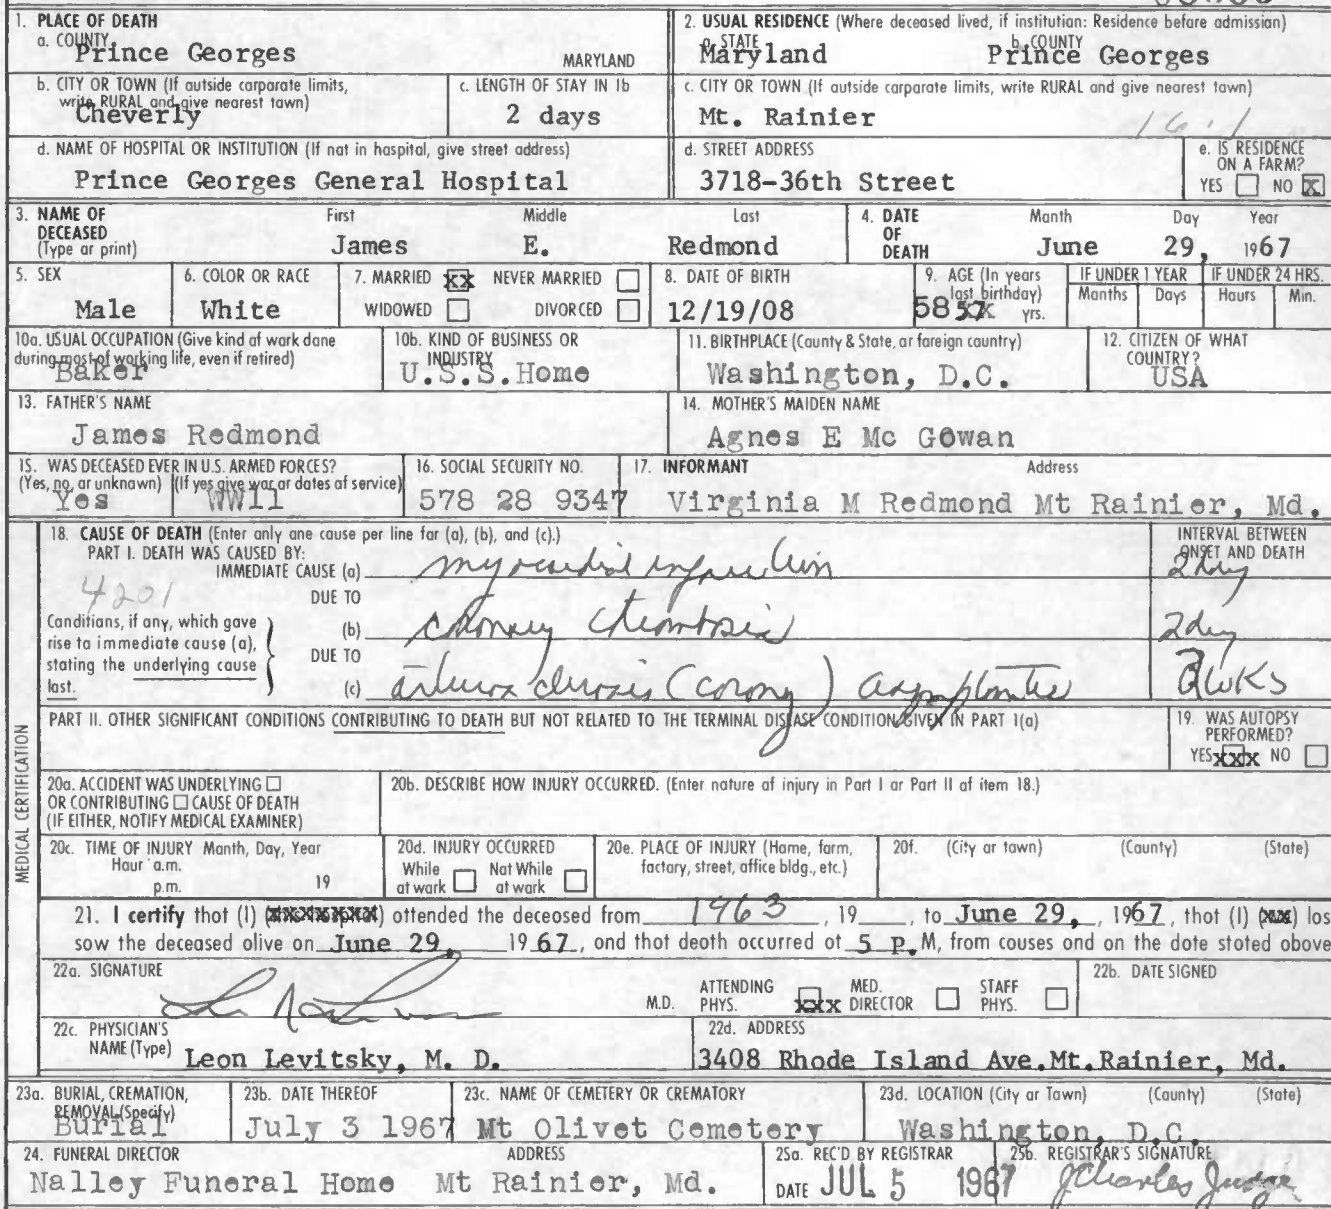 1. PLACE OF DEATH
a. COUNTY
Prince Georges MARYLAND
2. USUAL RESIDENCE (Where deceased lived, if institution: Residence before admission)
a. STATE b. COUNTY
Maryland Prince Georges
b. CITY OR TOWN (If outside corporate limits,
write RURAL and give nearest town)
Cheverly
c. LENGTH OF STAY IN 1b
2 days
c. CITY OR TOWN (If outside corporate limits, write RURAL and give nearest town)
Mt. Rainier
16.1
d. NAME OF HOSPITAL OR INSTITUTION (If not in hospital, give street address)
Prince Georges General Hospital
d. STREET ADDRESS
3718-36th Street
e. IS RESIDENCE
ON A FARM?
YES NO X
3. NAME OF
DECEASED
(Type or print)
First Middle Last
James E. Redmond
4. DATE
OF
DEATH
Month Day Year
June 29, 1967
5. SEX
Male
6. COLOR OR RACE
White
7. MARRIED xx NEVER MARRIED
WIDOWED DIVORCED
8. DATE OF BIRTH
12/19/08
9. AGE (In years
last birthday)
58 yrs.
IF UNDER 1 YEAR
Months Days
IF UNDER 24 HRS.
Hours Min.
10a. USUAL OCCUPATION (Give kind of work done
during most of working life, even if retired)
Baker
10b. KIND OF BUSINESS OR
INDUSTRY
U.S.S.Home
11. BIRTHPLACE (County & State, or foreign country)
Washington, D.C.
12. CITIZEN OF WHAT
COUNTRY?
USA
13. FATHER'S NAME
James Redmond
14. MOTHER'S MAIDEN NAME
Agnes E Mc Gowan
15. WAS DECEASED EVER IN U.S. ARMED FORCES?
(Yes, no, or unknown) (If yes give war or dates of service)
Yes WW11
16. SOCIAL SECURITY NO.
578 28 9347
17. INFORMANT Address
Virginia M Redmond Mt Rainier, Md.
MEDICAL CERTIFICATION
18. CAUSE OF DEATH (Enter only one cause per line for (a), (b), and (c).)
PART I. DEATH WAS CAUSED BY:
IMMEDIATE CAUSE (a) myocardial infarction
INTERVAL BETWEEN
ONSET AND DEATH
2 day
4201
DUE TO
Conditions, if any, which gave
rise to immediate cause (a),
stating the underlying cause
last.
(b) coronary thrombosis 2 day
DUE TO
(c) arteriosclerosis (corony) 3 wks
PART II. OTHER SIGNIFICANT CONDITIONS CONTRIBUTING TO DEATH BUT NOT RELATED TO THE TERMINAL DISEASE CONDITION GIVEN IN PART I(a)
19. WAS AUTOPSY
PERFORMED?
YES xxx NO
20a. ACCIDENT WAS UNDERLYING
OR CONTRIBUTING CAUSE OF DEATH
(IF EITHER, NOTIFY MEDICAL EXAMINER)
20b. DESCRIBE HOW INJURY OCCURRED. (Enter nature of injury in Part I or Part II of item 18.)
20c. TIME OF INJURY Month, Day, Year
Hour a.m.
p.m. 19
20d. INJURY OCCURRED
While Not While
at work at work
20e. PLACE OF INJURY (Home, farm,
factory, street, office bldg., etc.)
20f. (City or town) (County) (State)
21. I certify that (I) attended the deceased from 1963, 19 , to June 29, , 1967, that (I) (xx) las
saw the deceased alive on June 29, 1967, and that death occurred at 5 P.M, from causes and on the date stated above
22a. SIGNATURE
M.D.
ATTENDING
PHYS. xxx
MED.
DIRECTOR
STAFF
PHYS.
22b. DATE SIGNED
22c. PHYSICIAN'S
NAME (Type) Leon Levitsky, M. D.
22d. ADDRESS
3408 Rhode Island Ave.Mt.Rainier, Md.
23a. BURIAL, CREMATION,
REMOVAL (Specify)
Burial
23b. DATE THEREOF
July 3 1967
23c. NAME OF CEMETERY OR CREMATORY
Mt Olivet Cemetery
23d. LOCATION (City or Town) (County) (State)
Washington, D.C.
24. FUNERAL DIRECTOR ADDRESS
Nalley Funeral Home Mt Rainier, Md.
25a. REC'D BY REGISTRAR
DATE JUL 5 1967
25b. REGISTRAR'S SIGNATURE
J Charles Judge